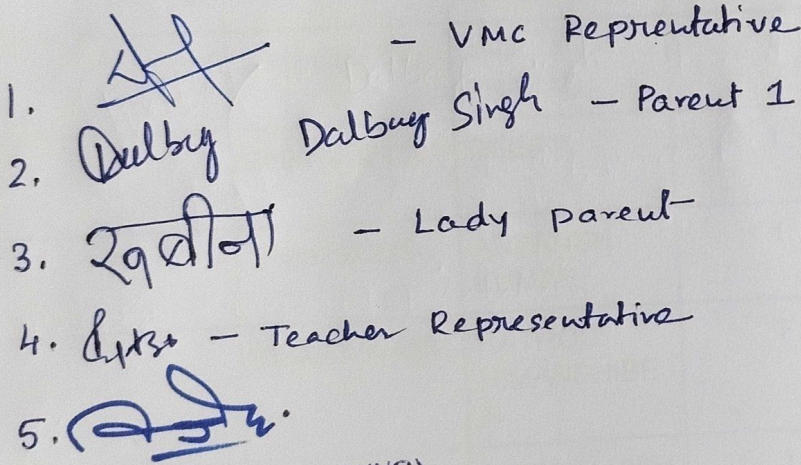 1. - VMC Repreutative
2. Dalbag Singh - Parent 1
3. रवबीना - Lady parent
4. - Teacher Representative
5.